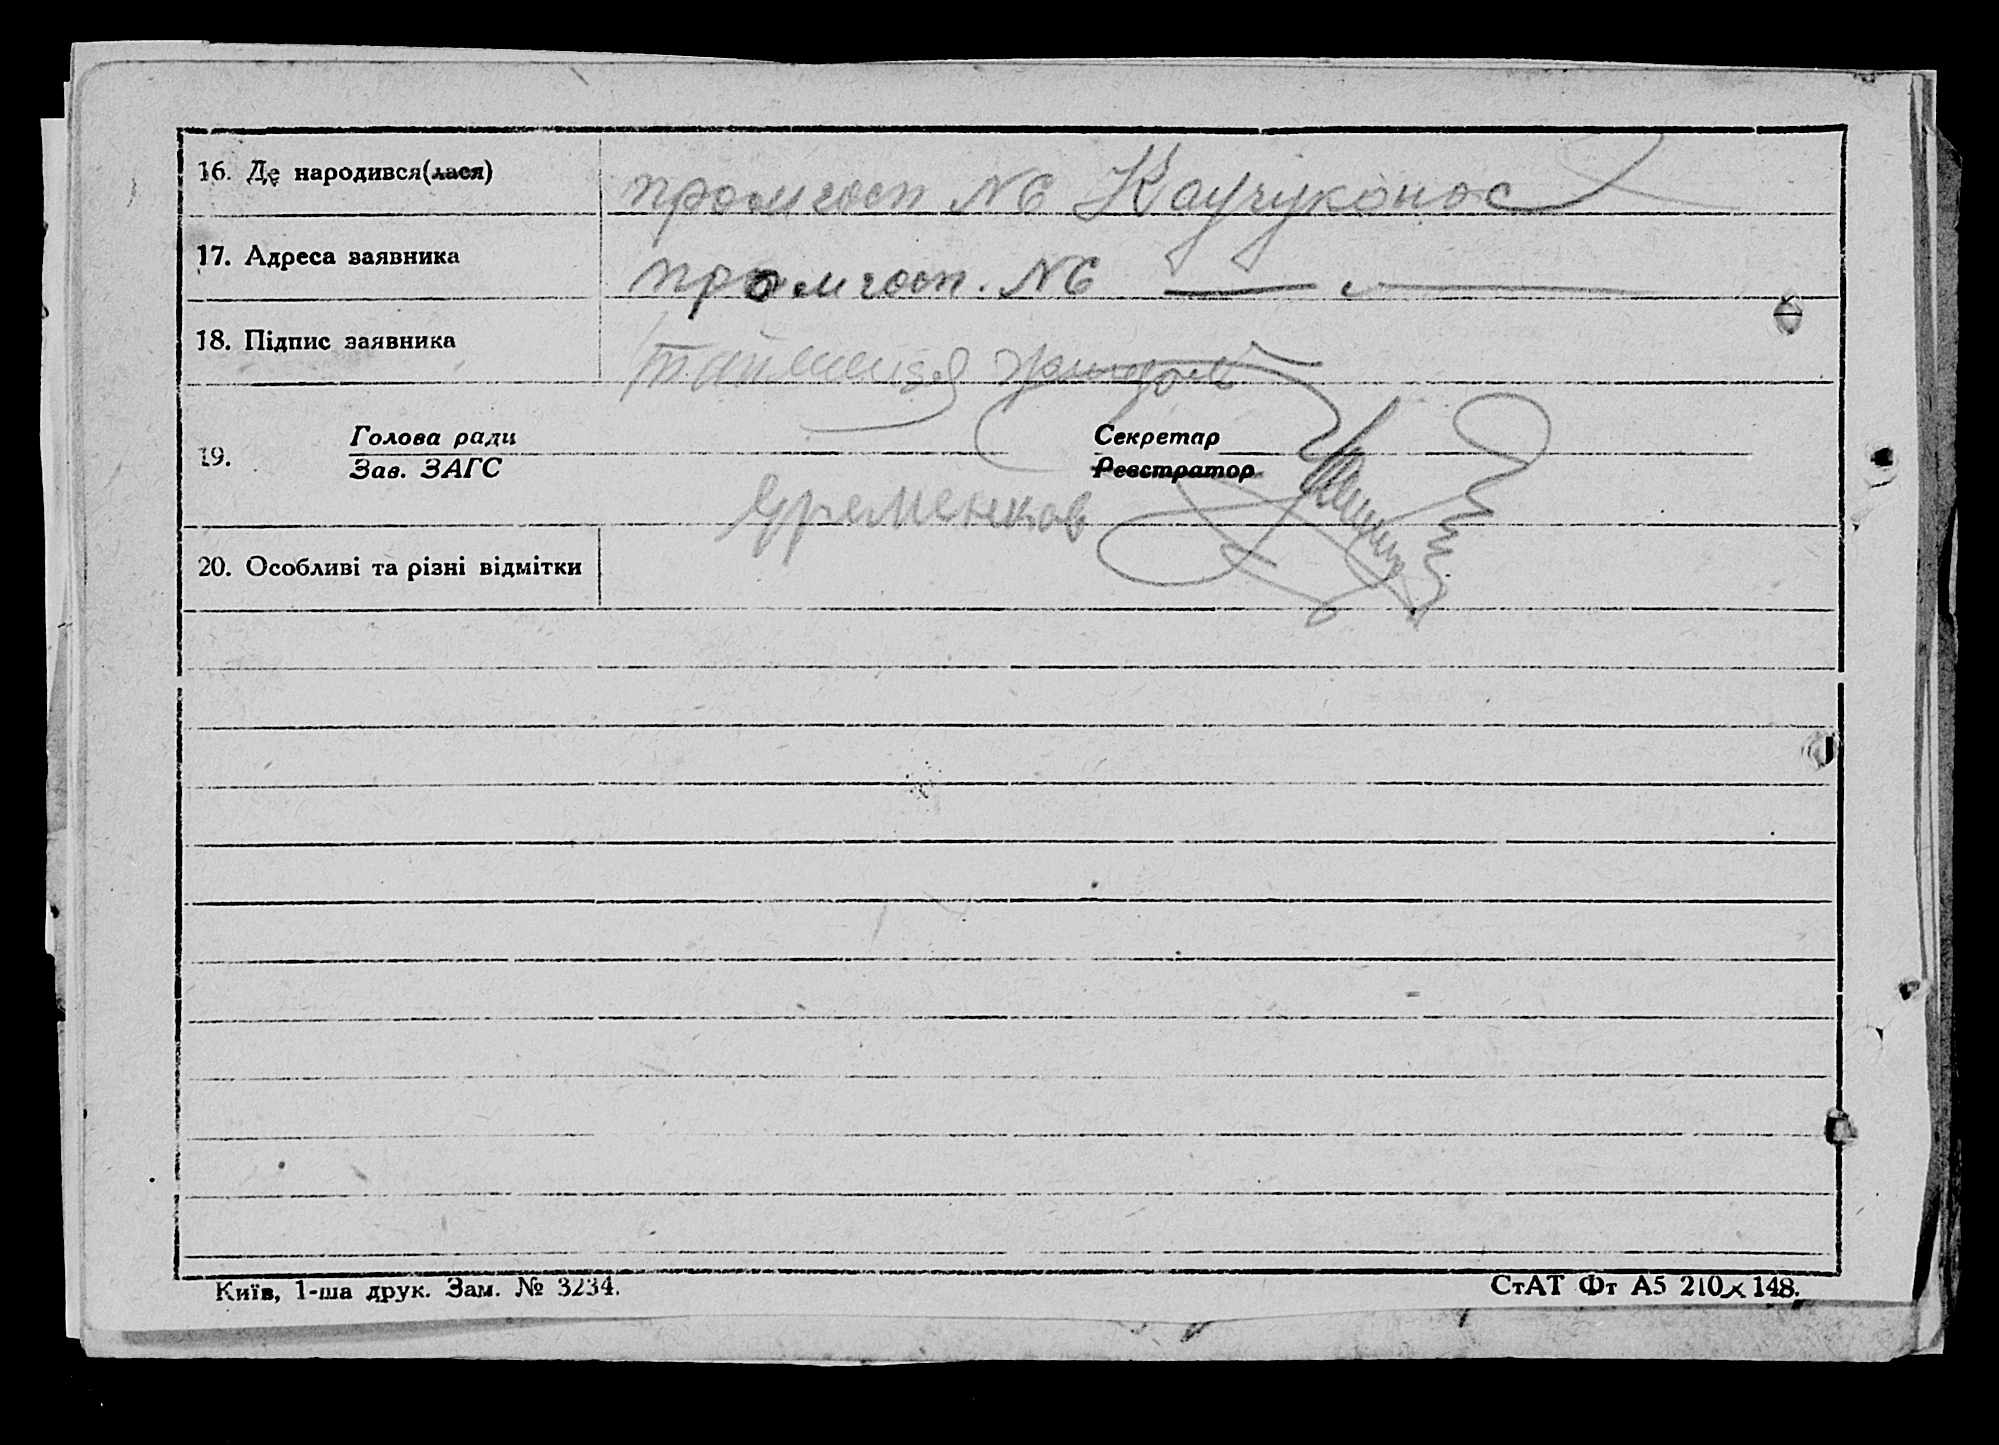 16. Де народився(лася) промгосп №6 Каучуконос
17. Адреса заявника промгосп. №6 — —
18. Підпис заявника
19. Голова ради Секретар
Зав. ЗАГС Реєстратор
Єременков
20. Особливі та різні відмітки
Київ, 1-ша друк. Зам. № 3234. СтАТ Фт А5 210×148.